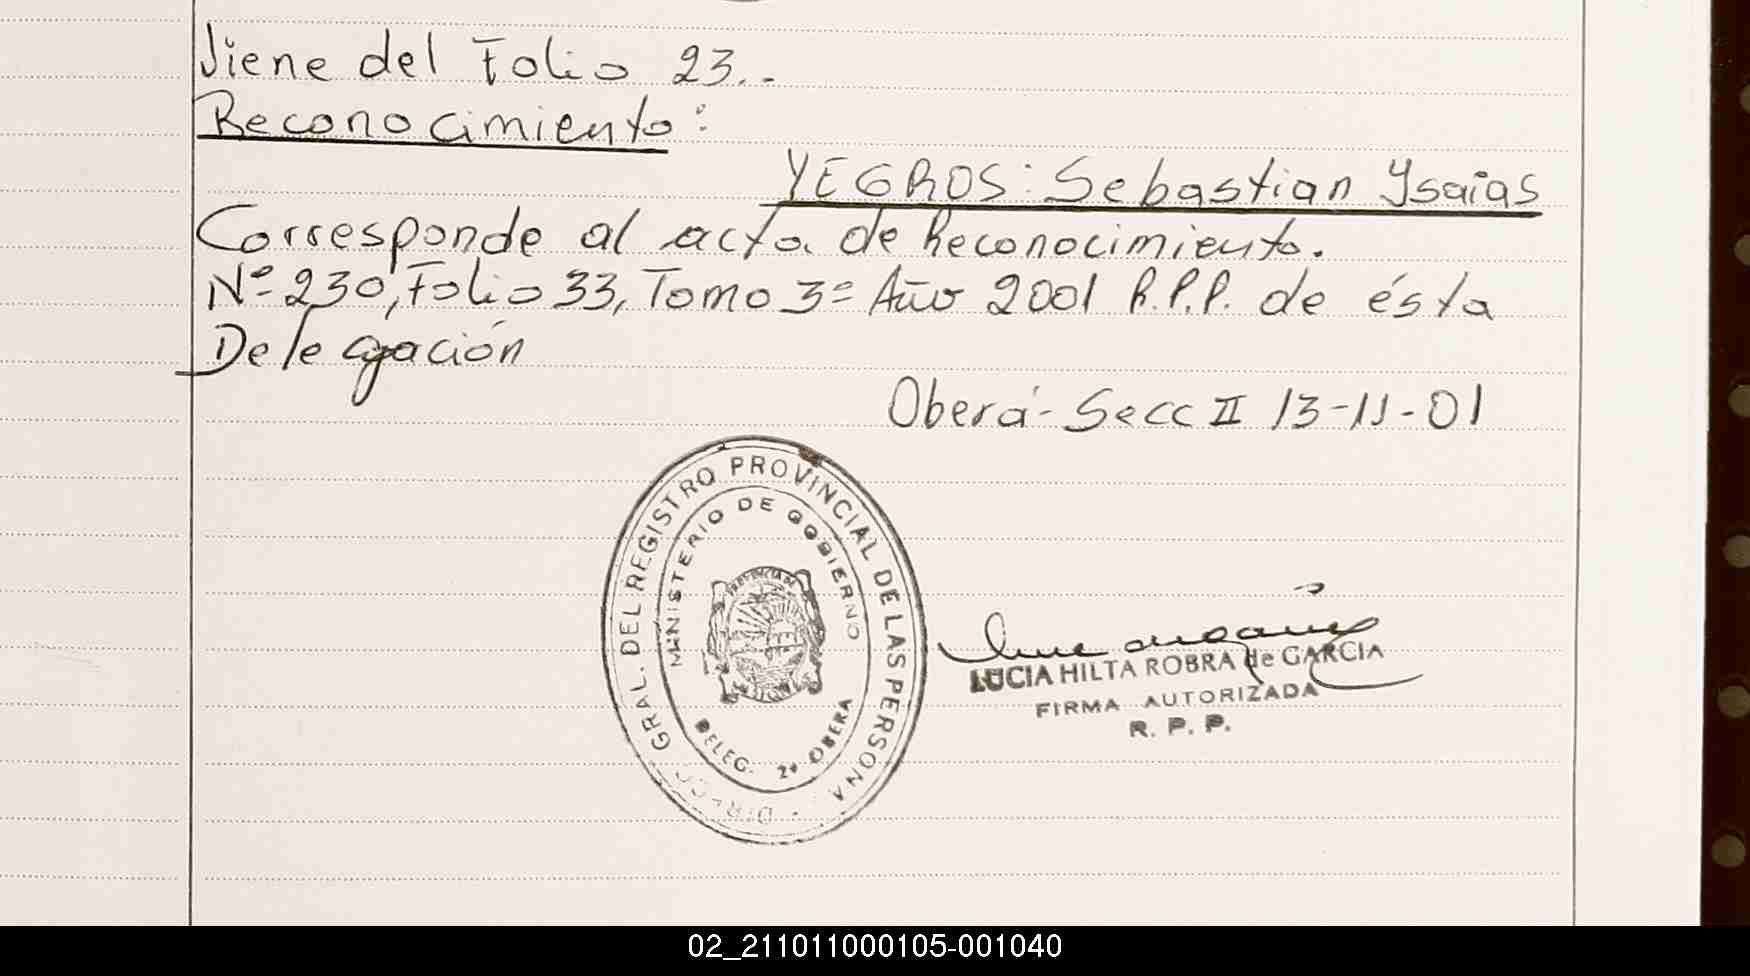 Viene del Folio 23..
Reconocimiento:
YEGROS: Sebastian Ysaias
Corresponde al acta de Reconocimiento.
Nº 230, Folio 33, Tomo 3º Año 2001 R.P.P. de ésta
Delegación
Oberá - Secc II 13-11-01
DIRECC GRAL. DEL REGISTRO PROVINCIAL DE LAS PERSONA
MINISTERIO DE GOBIERNO
PROVINCIA DE
DELEG. 2ª OBERA
LUCIA HILTA ROBRA de GARCIA
FIRMA AUTORIZADA
R. P. P.
02_211011000105-001040